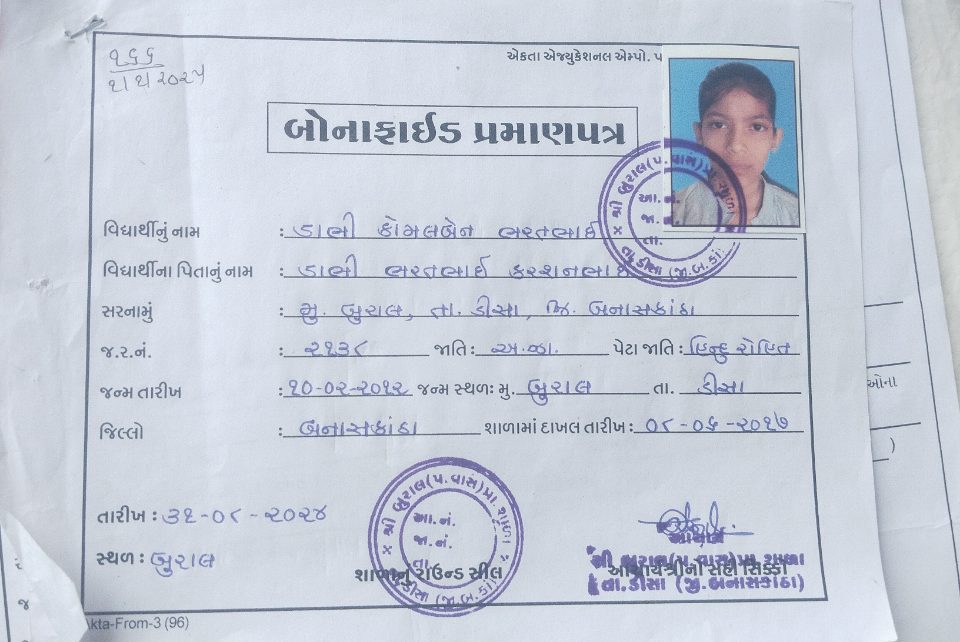 ૧૬૬
૨૦૨૫
એકતા એજ્યુકેશનલ એમ્પો. પ
બોનાફાઈડ પ્રમાણપત્ર
શ્રી બુરાલ(પ.વાસ)પ્રા.શાળા
આ.નં.
જા.નં.
તા.
તા.ડીસા(જી.બ.કાં)
વિદ્યાર્થીનું નામ : ડાભી કોમલબેન ભરતભાઈ
વિદ્યાર્થીના પિતાનું નામ : ડાભી ભરતભાઈ કરશનભાઈ
સરનામું : મુ. બુરાલ, તા. ડીસા, જિ. બનાસકાંઠા
જ.ર.નં. : ૨૧૩૮ જાતિ : અ.જા. પેટા જાતિ : હિન્દુ રોહિત
જન્મ તારીખ : ૧૦-૦૨-૨૦૧૨ જન્મ સ્થળઃ મુ. બુરાલ તા. ડીસા
જિલ્લો : બનાસકાંઠા શાળામાં દાખલ તારીખ : ૦૮-૦૬-૨૦૧૭
ઓના
)
તારીખ : ૩૧-૦૮-૨૦૨૪
સ્થળ : બુરાલ
શ્રી બુરાલ(પ.વાસ)પ્રા.શાળા
આ.નં.
જા.નં.
તા.
તા.ડીસા(જી.બ.કાં)
શાળાનું રાઉન્ડ સીલ
આચાર્ય
શ્રી બુરાલ(પ.વાસ)પ્રા શાળા
આચાર્યશ્રીનો સહી સિક્કો
તા.ડીસા (જી.બનાસકાંઠા)
જ
kta-From-3 (96)